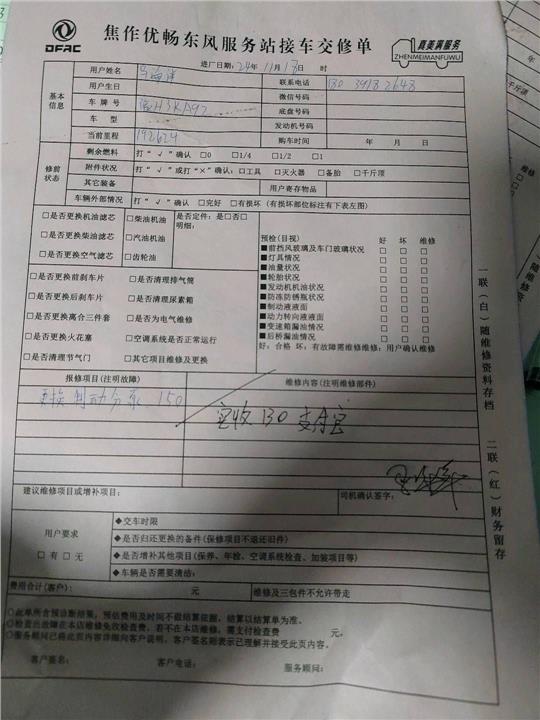 DFAC
焦作优畅东风服务站接车交修单
真美满服务
ZHENMEIMANFUWU
进厂日期：24年11月18日 时
基本信息
用户姓名
联系电话 130 3918 2648
用户生日
微信号码
车牌号
底盘号码
车型
发动机号码
当前里程 192624
购车时间 年 月 日
修前状态
剩余燃料 打“√”确认 □0 □1/4 □1/2 □1
附件状况 打“√”或打“×”确认：□工具 □灭火器 □备胎 □千斤顶
其它装备 用户寄存物品
车辆外部情况 打“√”确认 □完好 □有损坏（有损坏部位标注有下表左图）
□是否更换机油滤芯 □柴油机油
□是否更换柴油滤芯 □汽油机油
□是否更换空气滤芯 □齿轮油
是否定件：是□否□
明细：
□是否更换前刹车片 □是否清理排气筒
□是否更换后刹车片 □是否清理尿素箱
□是否更换离合三件套 □是否为电气维修
□是否更换火花塞 □空调系统是否正常运行
□是否清理节气门 □其它项目维修及更换
预检(目视) 好 坏 维修
■前挡风玻璃及车门玻璃状况 □ □ □
■灯具情况 □ □ □
■油量状况 □ □ □
■轮胎状况 □ □ □
■发动机机油状况 □ □ □
■防冻防锈瓶状况 □ □ □
■制动液液面 □ □ □
■动力转向液液面 □ □ □
■变速箱漏油情况 □ □ □
■后桥漏油情况 □ □ □
好：合格 坏：有故障需维修维修：用户确认维修
报修项目(注明故障)
维修内容(注明维修部件)
更换制动分泵 150
实收130 支付宝
建议维修项目或增补项目：
司机确认签字：
用户要求
□有□无
◆交车时限
◆是否归还更换的备件(保修项目不退还旧件)
◆是否增补其他项目(保养、年检、空调系统检查、加装项目等)
◆车辆是否需要清洁：
费用合计(客户)： 元
维修及三包件不允许带走
○此单所含预诊断结果，预估费用及时间不做结算依据，结算以结算单为准。
○检查出故障在本店维修免收检查费，若不在本店维修，需支付检查费 元。
○服务顾问已将此页内容详细向客户说明，客户签名则表示已理解并接受此页内容。
客户签名： 客户电话： 服务顾问：
一联(白)随维修资料存档
二联(红)财务留存